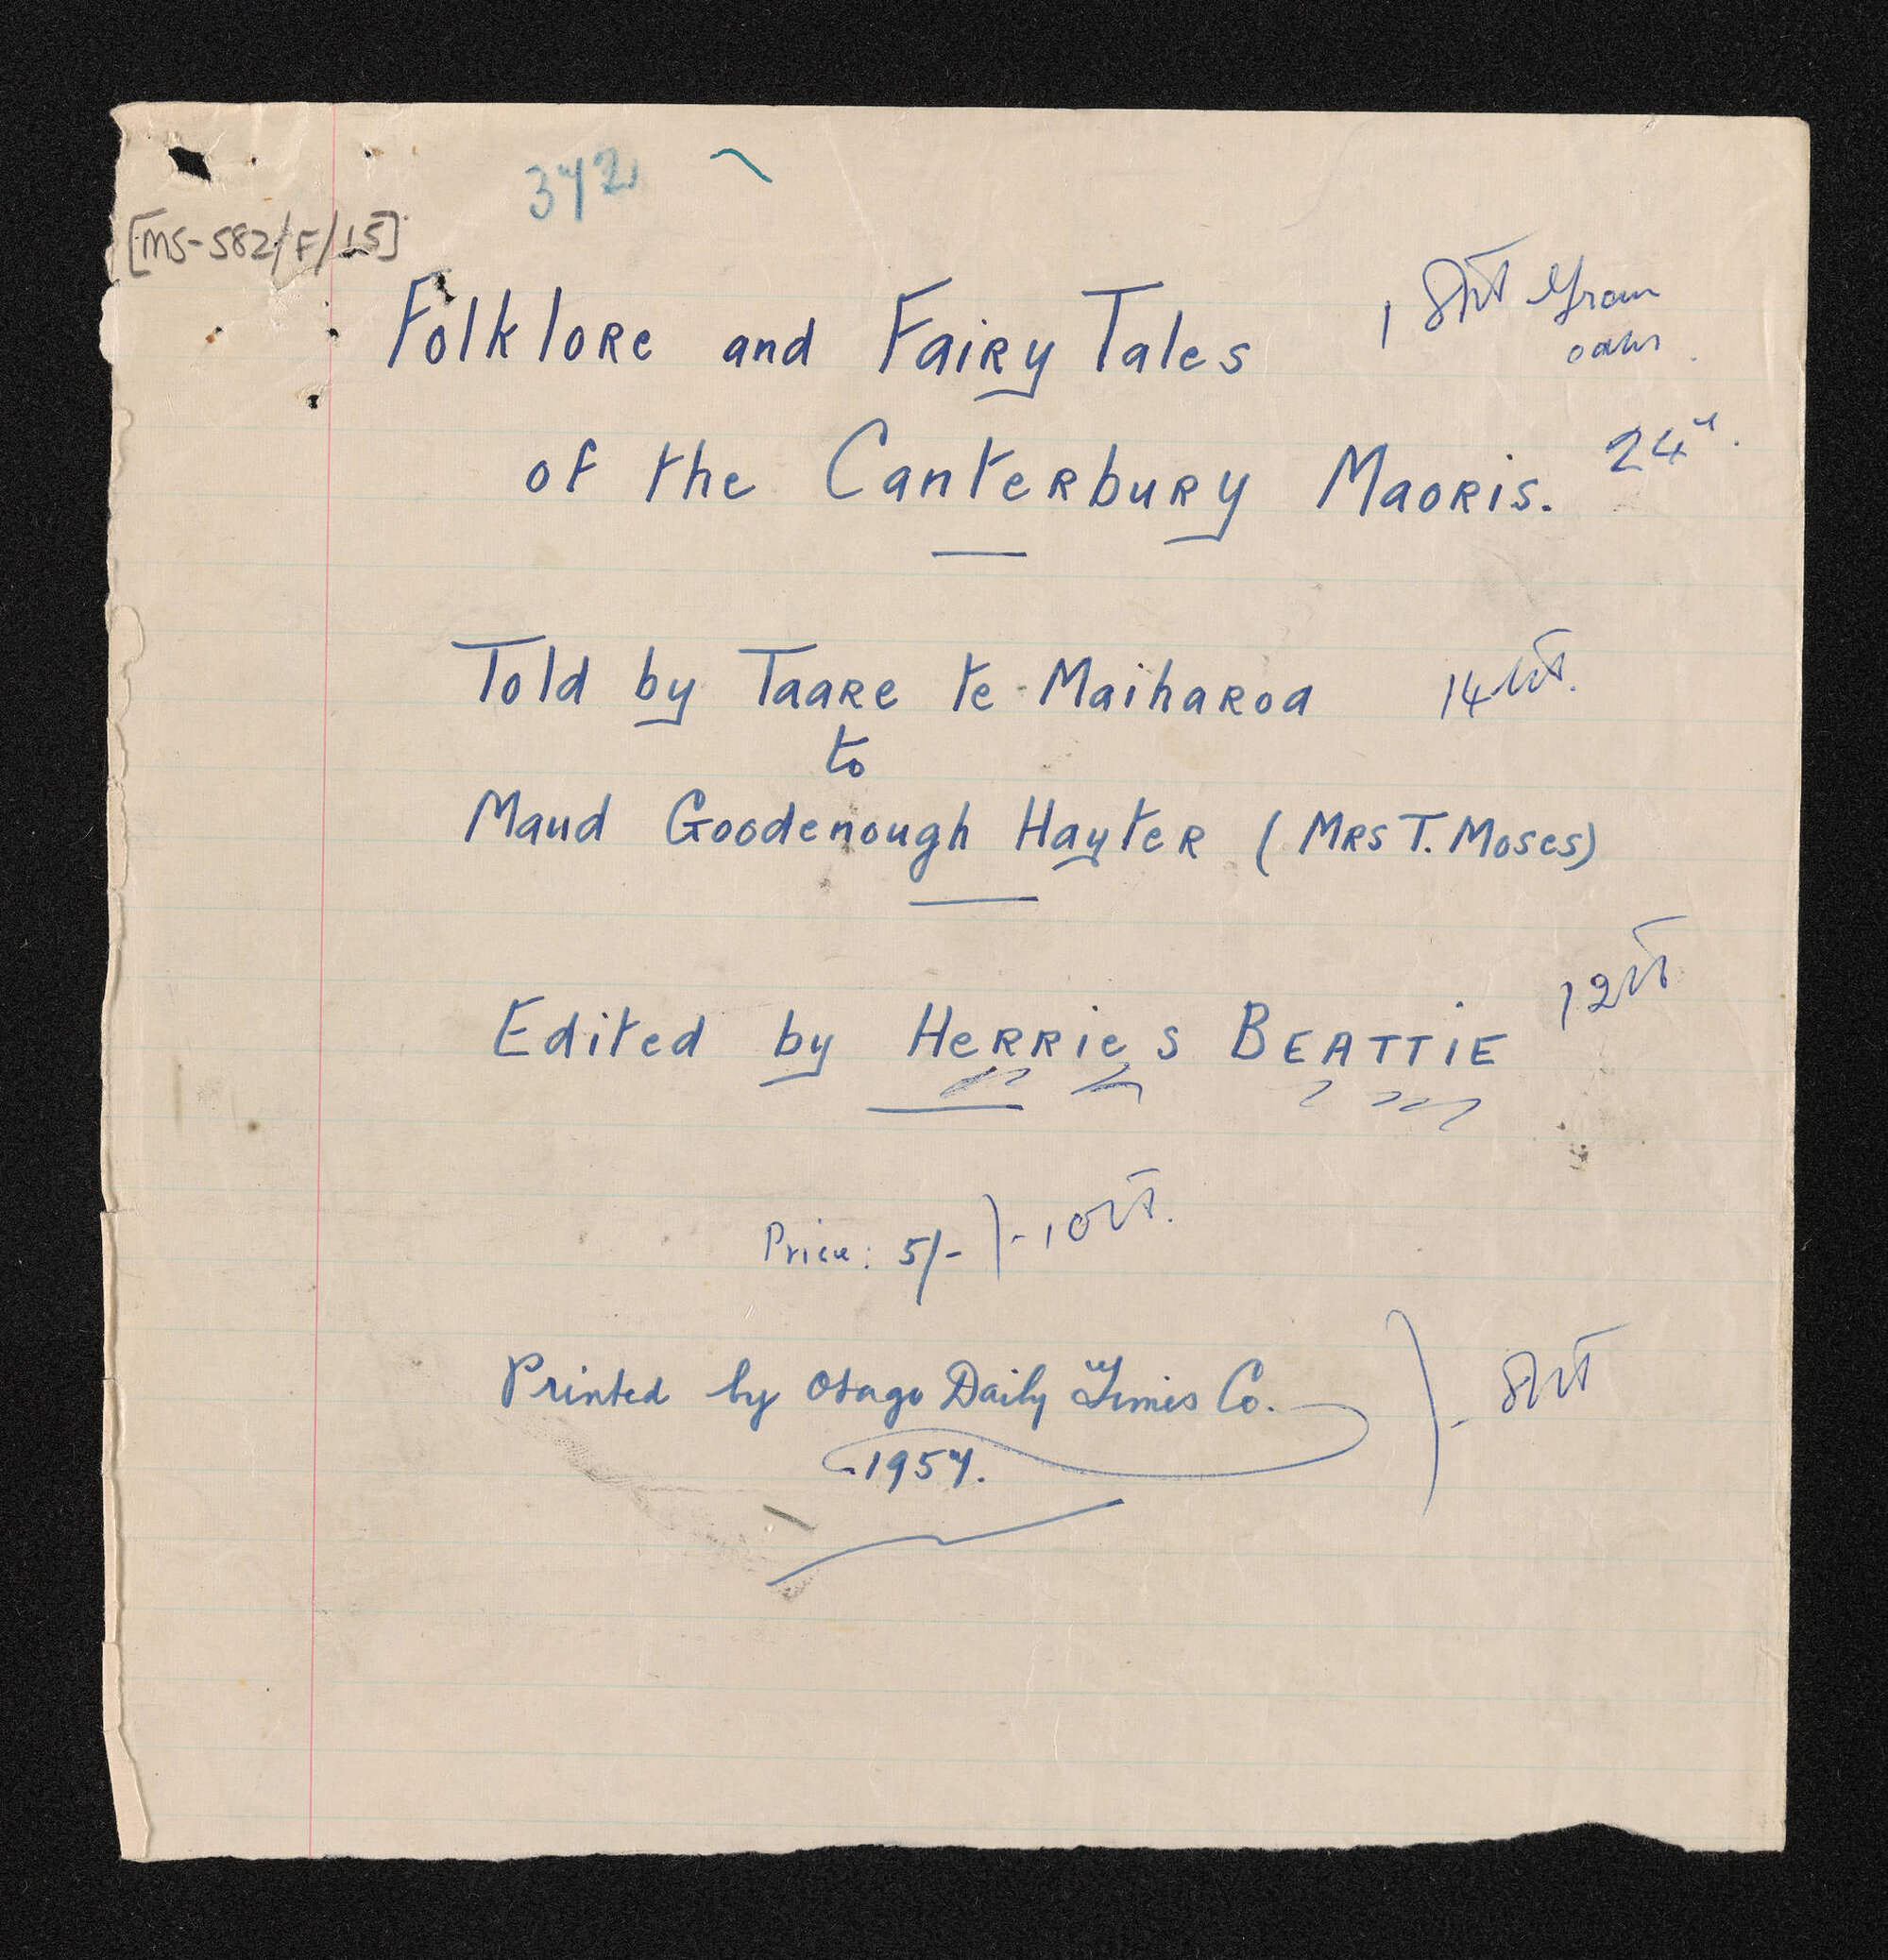 372
[MS-582/F/15]
Folklore and Fairy Tales
of the Canterbury Maoris. 24
Told by Taare te Maiharoa 14pt.
to
Maud Goodenough Hayter (Mrs T. Moses)
Edited by Herries Beattie 12pt
Price: 5/- } - 10pt.
Printed by Otago Daily Times Co. } - 8pt
1957.